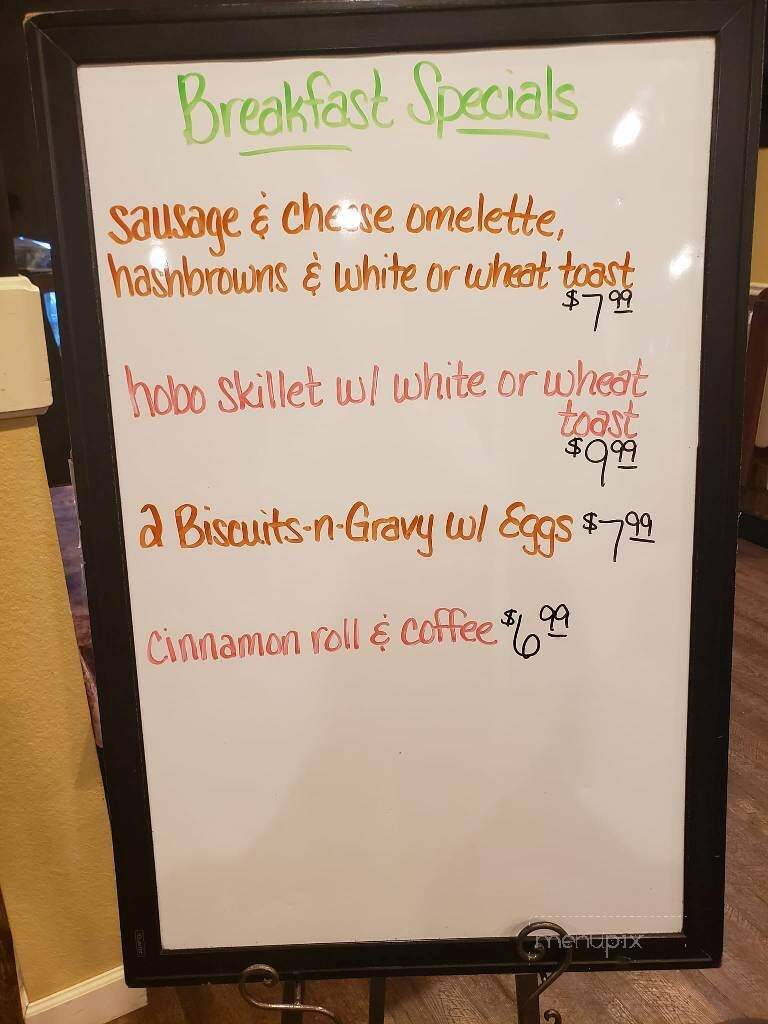 Breakfast Specials
sausage & cheese omelette,
hashbrowns & white or wheat toast
$7.99
hobo skillet w/ white or wheat
toast
$9.99
2 Biscuits-n-Gravy w/ Eggs $7.99
cinnamon roll & coffee $6.99
menupix